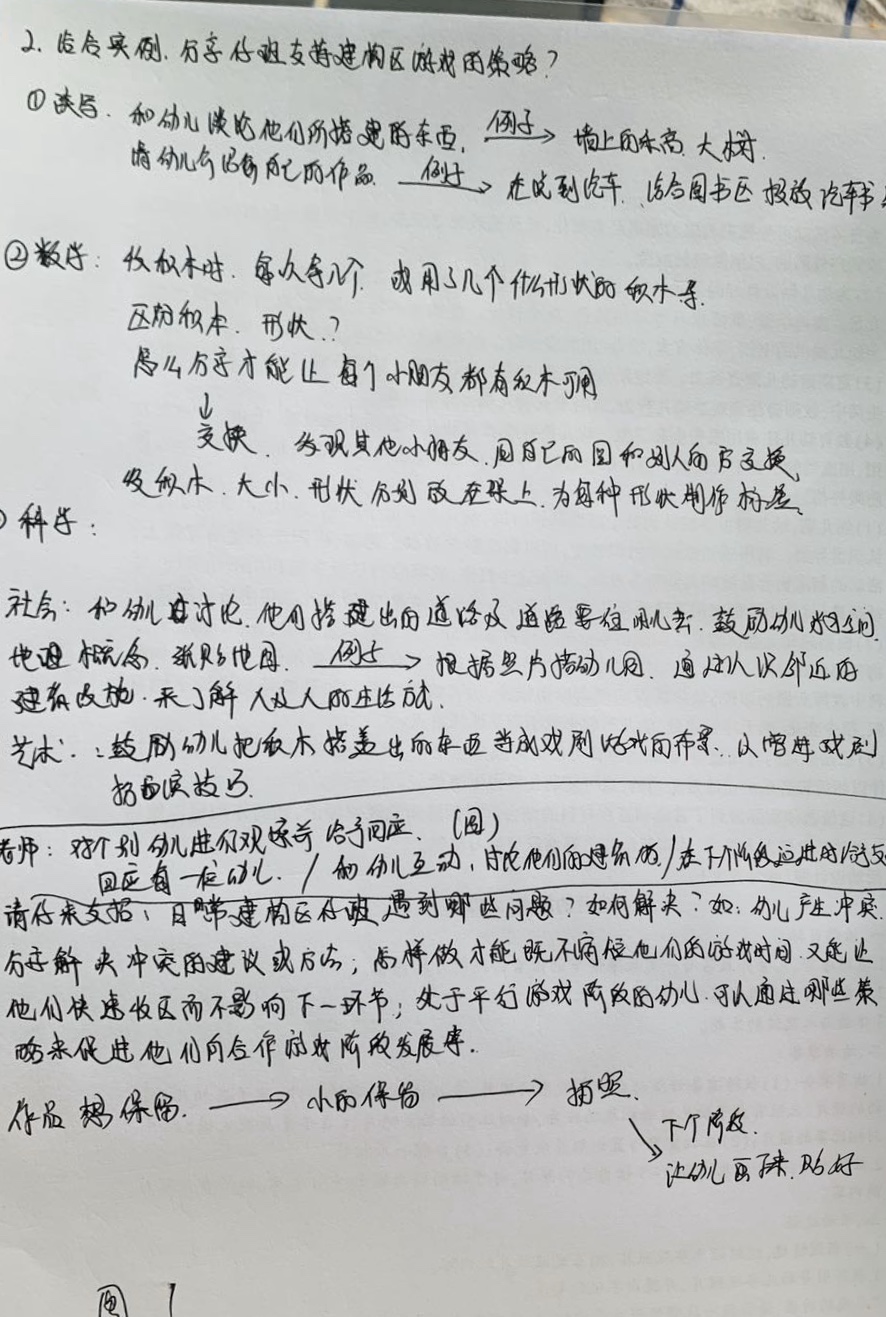 2. 结合实例. 分享你班支持建构区游戏的策略?
① 读写. 和幼儿谈论他们所搭建的东西, 例子→ 墙上的 大树.
请幼儿介绍自己的作品 例子→ 在说到汽车. 结合图书区 投放汽车书
② 数学: 收积木时. 每次拿几个. 或用了几个什么形状的积木等.
区别积木. 形状.?
怎么分享才能让每个小朋友都有积木可用
↓
交换. 发现其他小朋友. 用自己的圆和别人的方交换
收积木. 大小. 形状分别放在架上. 为每种形状制作标签.
科学:
社会: 和幼儿讨论. 他们搭建出的道路及道路要往哪儿去. 鼓励幼儿 空间.
地理概念. 张贴地图. 例子→ 根据照片搭幼儿园. 通过认识邻近的
建筑设施. 来了解人及人的生活方式.
艺术: 鼓励幼儿把积木搭盖出的东西当成戏剧游戏的布景. 以增进戏剧
扮演技巧.
老师: 对个别幼儿进行观察并给予回应. (图)
回应每一位幼儿. / 和幼儿互动, 讨论他们的建筑 / 在下个阶段 时给
请你来支招: 日常建构区你班遇到哪些问题? 如何解决? 如: 幼儿产生冲突.
分享解决冲突的建议或方法; 怎样做才能既不 他们的游戏时间. 又能让
他们快速收区而不影响下一环节; 处于平行游戏阶段的幼儿. 可以通过哪些策
略来促进他们向合作游戏阶段发展等.
作品想保留. → 小的保留 → 拍照.
↘ 下个阶段.
让幼儿画下来. 贴好
图 1